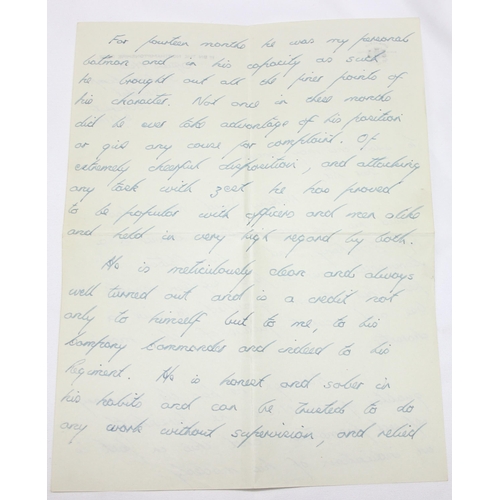 For fourteen months he was my personal
batman and in his capacity as such
he brought out all the finer points of
his character. Not once in these months
did he ever take advantage of his position
or give any cause for complaint. Of
extremely cheerful disposition, and attacking
any task with zest he has proved
to be popular with officers and men alike
and held in very high regard by both.
He is meticulously clean and always
well turned out and is a credit not
only to himself but to me, to his
Company Commander and indeed to his
Regiment. He is honest and sober in
his habits and can be trusted to do
any work without supervision, and relied